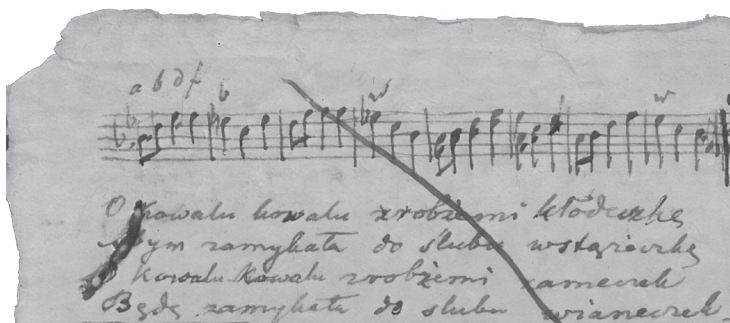 a b d f
b
w
w
O kowalu kowalu zrobżemi kłódeczkę
bym zamykała do ślubu wstążeczkę
kowalu kowalu zrobżemi zameczek
Będę zamykała do ślubu wianeczek